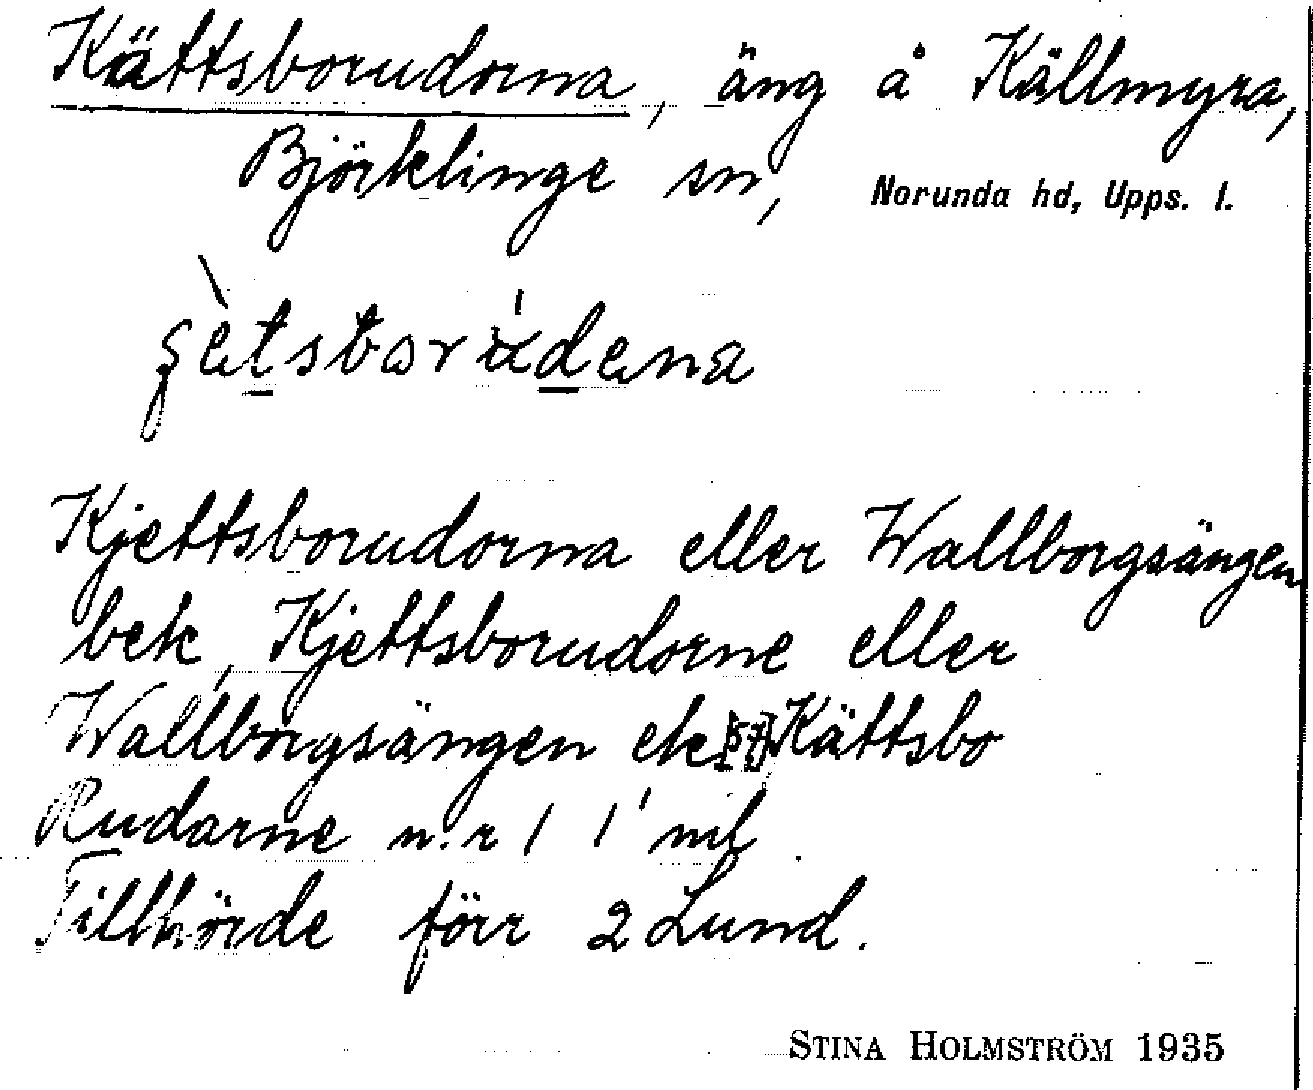 Kättsborudorna, äng å Källmyra,
Björklinge sn, Norunda hd, Upps. l.
Kjettsborudorna eller Wallborgsängen
bek, Kjettsborudorne eller
Wallborgsängen ek 57 Kättsbo
Rudarne n:r 1 1' mil
Tillhörde förr 2 Lund.
STINA HOLMSTRÖM 1935